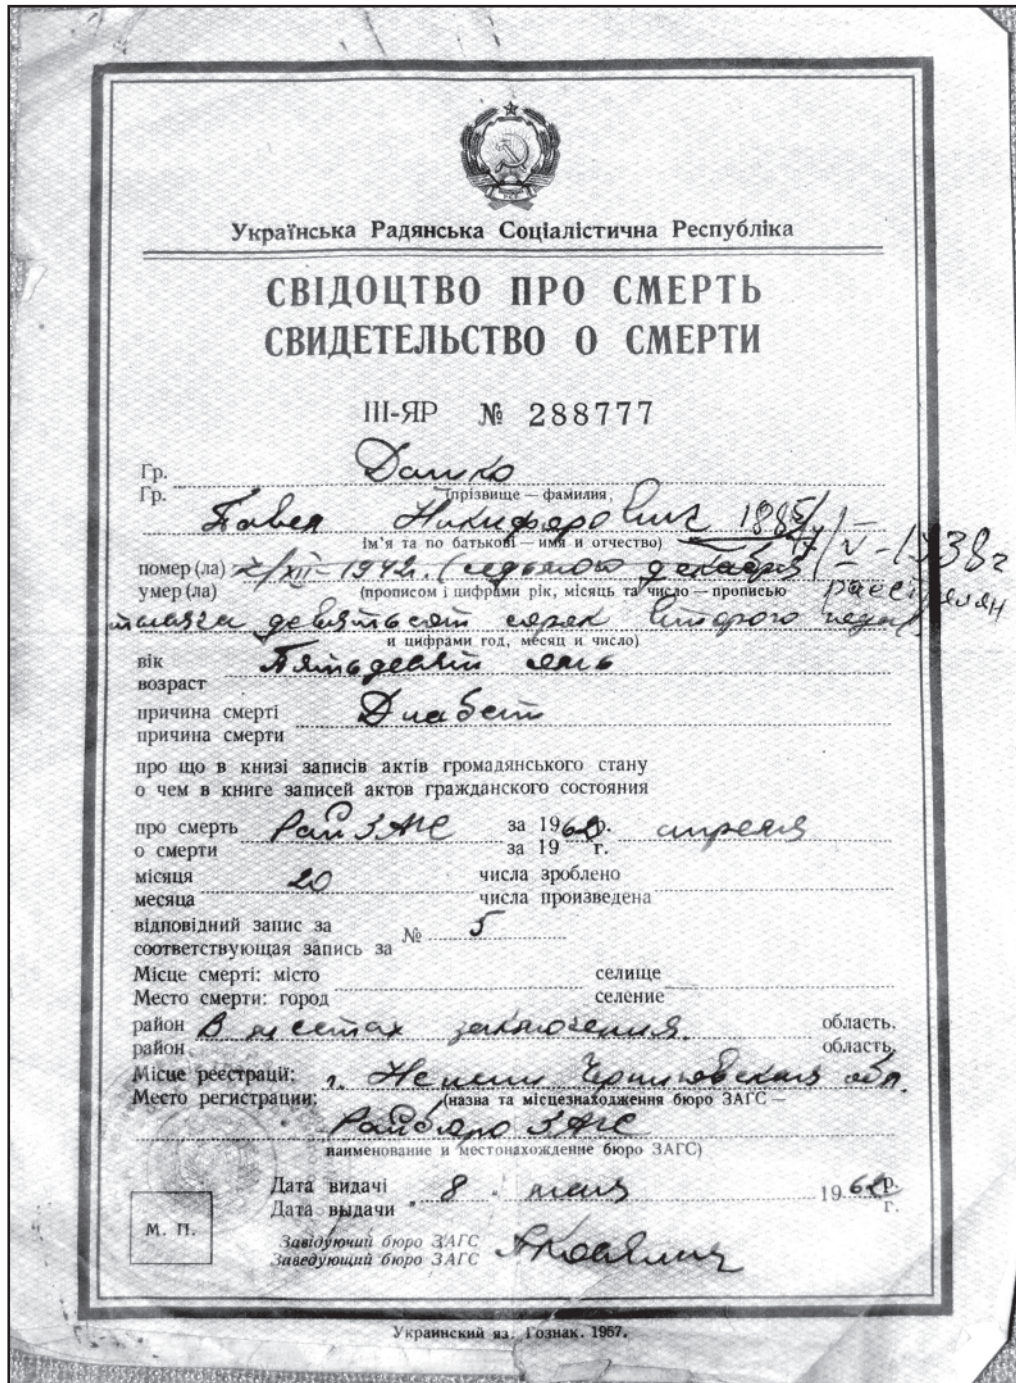 Українська Радянська Соціалістична Республіка
СВІДОЦТВО ПРО СМЕРТЬ
СВИДЕТЕЛЬСТВО О СМЕРТИ
III-ЯР № 288777
Гр. Дашко
Гр. (прізвище — фамилия,
Павел Никифорович 1885
ім'я та по батькові — имя и отчество) V-1938г
помер (ла) 7/XII-1942г. (седьмого декабря
умер (ла) (прописом і цифрами рік, місяць та число — прописью расстрелян
тысяча девятьсот сорок второго года
и цифрами год, месяц и число)
вік Пятьдесят семь
возраст
причина смерті Диабет
причина смерти
про що в книзі записів актів громадянського стану
о чем в книге записей актов гражданского состояния
про смерть РайЗАГС за 19 р. апреля
о смерти за 19 г.
місяця 20 числа зроблено
месяца числа произведена
відповідний запис за № 5
соответствующая запись за
Місце смерті: місто селище
Место смерти: город селение
район В местах заключения. область.
район область.
Місце реєстрації: г. Нежин Черниговская обл.
Место регистрации: (назва та місцезнаходження бюро ЗАГС —
Райбюро ЗАГС
наименование и местонахождение бюро ЗАГС)
Дата видачі 8 мая 19 р.
Дата выдачи " г.
М. П.
Завідуючий бюро ЗАГС
Заведующий бюро ЗАГС
Украинский яз. Гознак. 1957.